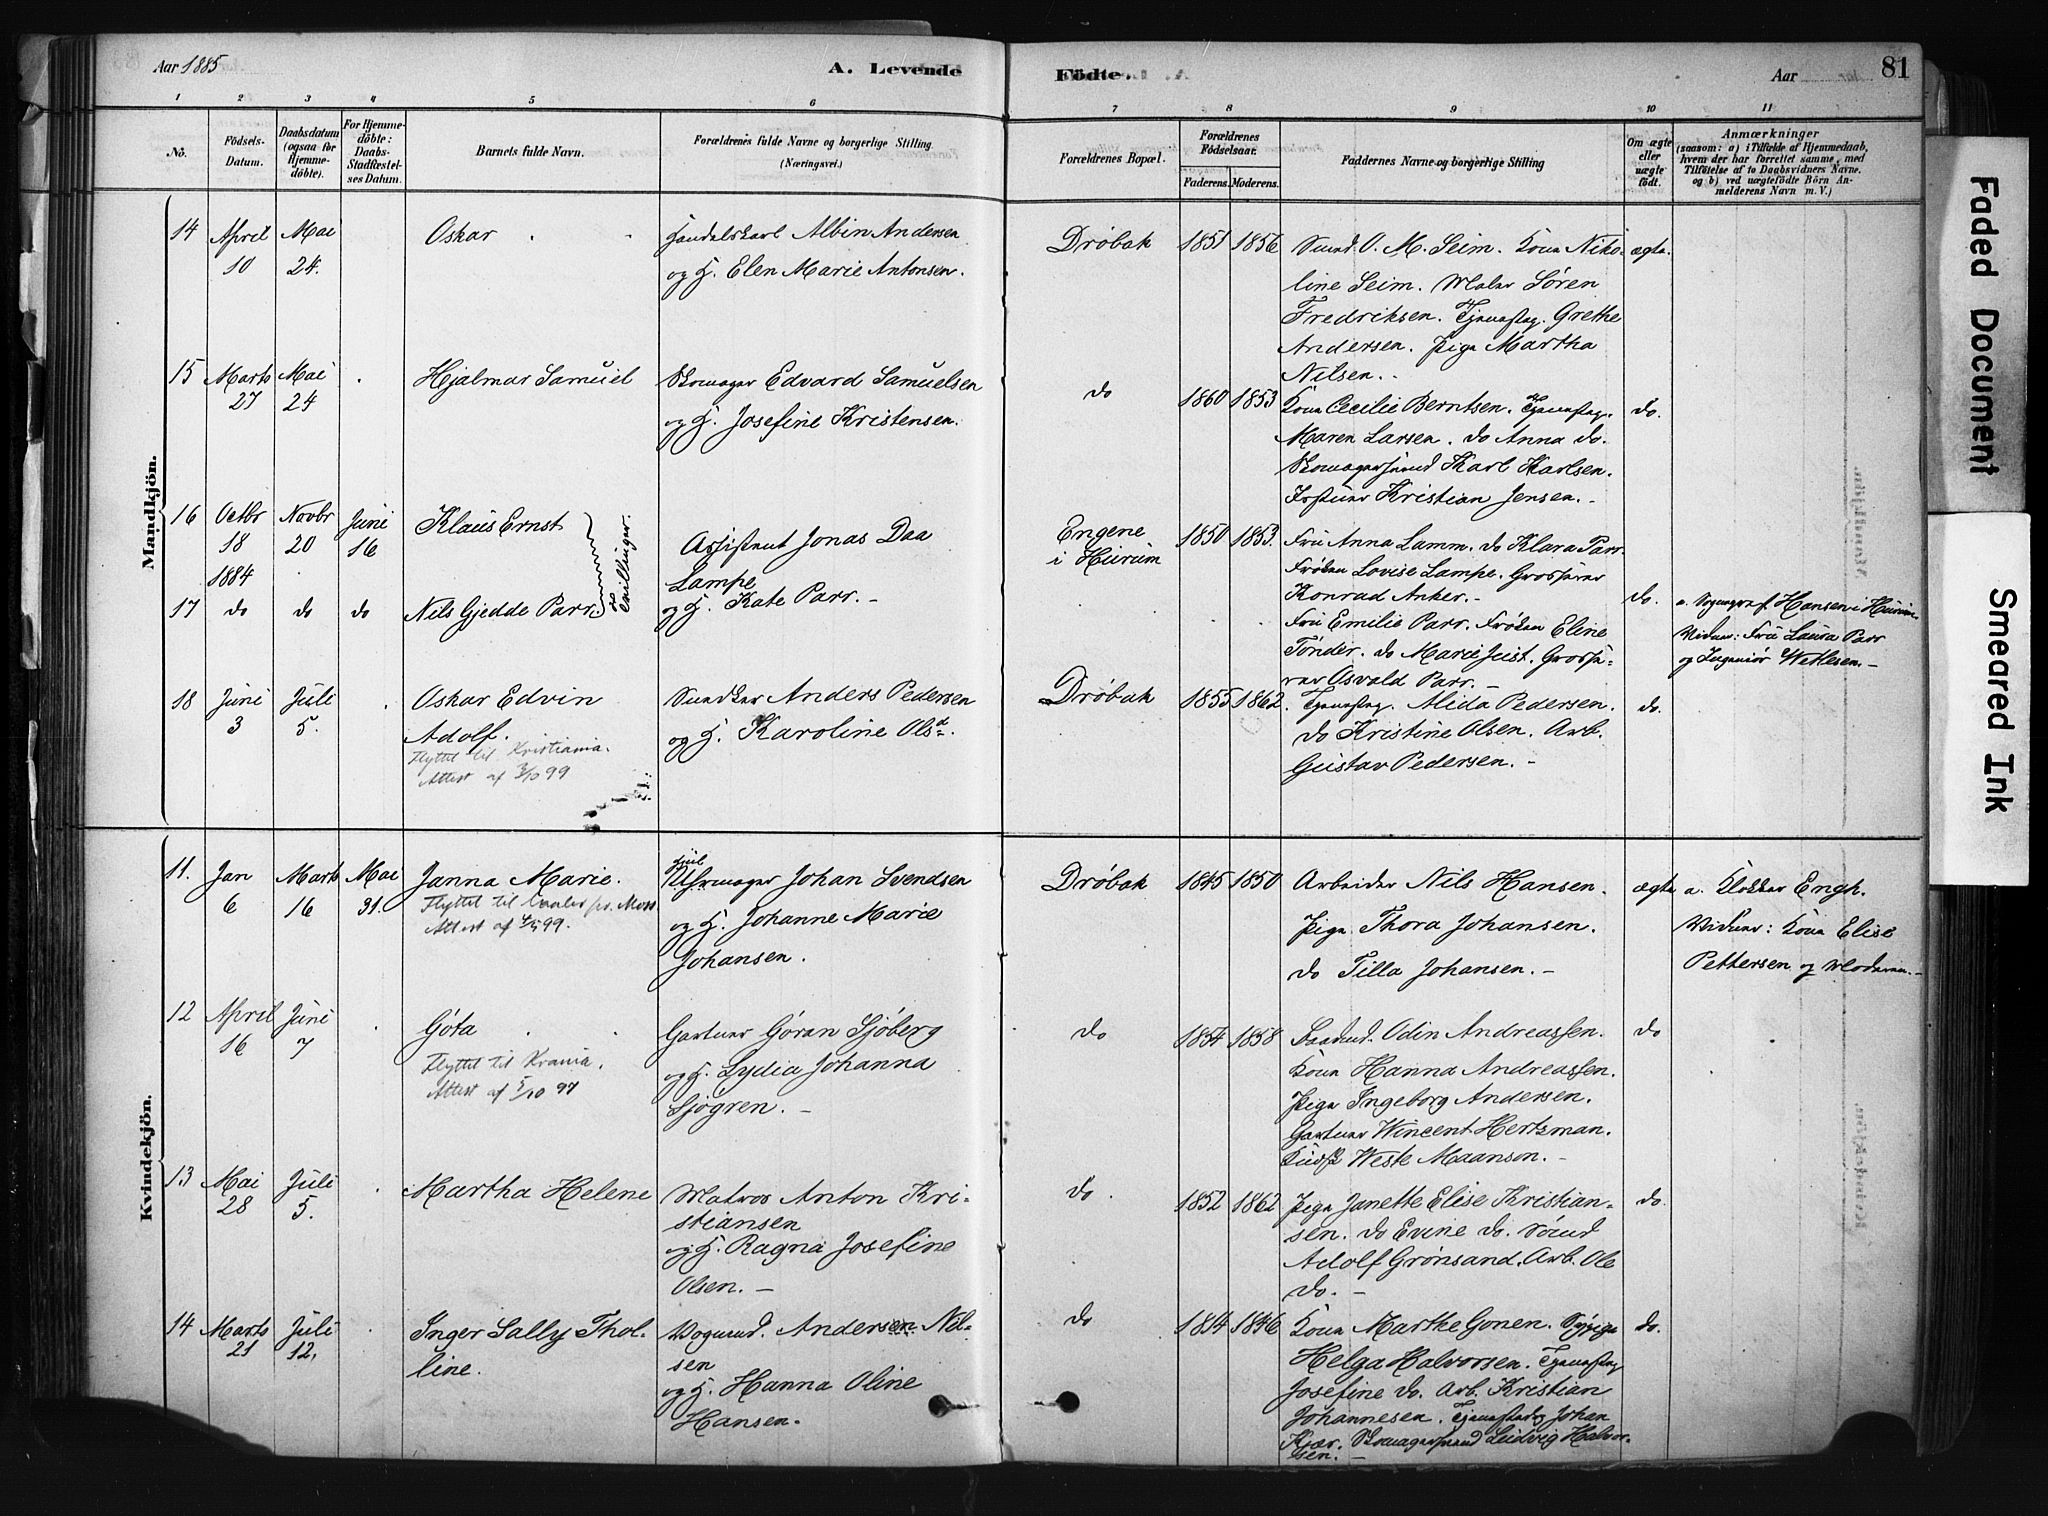 Aar 1885
A. Levende
Födte.
Aar
81
1 2 3 4 5 6 7 8 9 10 11
No.
Födsels-
Datum.
Daabsdatum
(ogsaa for
Hjemme-
döbte).
For Hjemme-
döbte:
Daabs-
Stadfæstel-
ses Datum.
Barnets fulde Navn.
Forældrenes fulde Navne og borgerlige Stilling
(Næringsvei.)
Forældrenes Bopæl.
Forældrenes
Födselsaar.
Faderens. Moderens.
Faddernes Navne og borgerlige Stilling
Om ægte
eller
uægte
födt.
Anmærkninger
(saasom: a) i Tilfælde af Hjemmedaab,
hvem der har forrettet samme, med
Tilföielse af to Daabsvidners Navne.
og b) ved uægtefödte Börn An-
melderens Navn m. V.)
Mandkjön.
14
April
10
Mai
24.
Oskar
Handelskarl Albin Andersen
og H. Elen Marie Antonsen.
Drøbak
1851 1856
O. M. Seim. Kona Niko-
line Seim. Maler Søren
Fredriksen. Tjenestpg. Grethe
Andersen. Pige Martha
Nilsen.
ægte.
15
Marts
27
Mai
24
Hjalmar Samuel
Skomager Edvard Samuelsen
og H. Josefine Kristensen.
do
1860 1853
Kona Cecilie Berntsen. Tjenestpg.
Maren Larsen. do Anna do.
Skomagersvend Karl Karlsen.
Kristian Jensen.
do.
16
Octbr
18
1884
Novbr
20
Juni
16
Klaus Ernst
Tvillinger.
Assistent Jonas Daa
Lampe
og H. Kate Parr. -
Engene
i Hurum
1850 1853.
Fru Anna Lamm. do Klara Parr.
Frøken Lovise Lampe. Grosserer
Konrad Anker. -
17
do
do
do
Nils Gjedde Parr.
Fru Emilie Parr. Frøken Eline
Tønder. do Marie Juist. Grosse-
rer Osvald Parr. -
do.
a. Sogneprest Hansen i Hurum
Vidner: Fru Laura Parr
og Ingeniør Wetlesen. -
18
Juni
3
Juli
5.
Oskar Edvin
Adolf.
Flyttet til Kristiania.
Attest af 3/10 99
Anders Pedersen
og H. Karoline Olsn.
Drøbak
1855 1862
Tjenestpg. Alida Pedersen.
do Kristine Olsen. Arb.
Gustav Pedersen. -
do.
Kvindekjön.
11.
Jan
6
Marts
16
Mai
31.
Janna Marie.
Flyttet til Vaaler pr. Moss
Attest af 4/5 99.
Johan Svendsen
og H. Johanne Marie
Johansen.
Drøbak
1845 1850
Arbeider Nils Hansen.
Pige Thora Johansen.
do Tilla Johansen. -
ægte
a. Klokker Engh.
Vidner: Kona Elise
Pettersen og Moderen. -
12
April
16
Juni
7
Göta
Flyttet til Krania.
Attest af 5/10 97
Gartner Göran Sjöberg
og H. Lydia Johanna
Sjögren. -
do
1854 1858
Odin Andreassen.
Kona Hanna Andreassen.
Pige Ingeborg Andersen.
Gartner Wincent Hertzman.
Kudsk Weste Maanson. -
do
13
Mai
28
Juli
5.
Martha Helene
Matros Anton Kri-
stiansen
og H. Ragna Josefine
Olsen. -
do.
1852 1862
Pige Janette Elise Kristian-
sen. do Evine do.
Adolf Grønsand. Arb. Ole
do. -
do.
14
Marts
21
Juli
12.
Inger Sally Thol-
line.
Vognmd. Andersen Nil-
sen
og H. Hanna Oline
Hansen.
do
1814 1846
Kona Marthe Gonen. Sypige
Helga Halvorsen. Tjenestpg
Josefine do. Arb. Kristian
Johannesen. Johan
Kjær. Skomagersvend Ludvig Halvor-
sen. -
do.
Faded Document
Smeared Ink